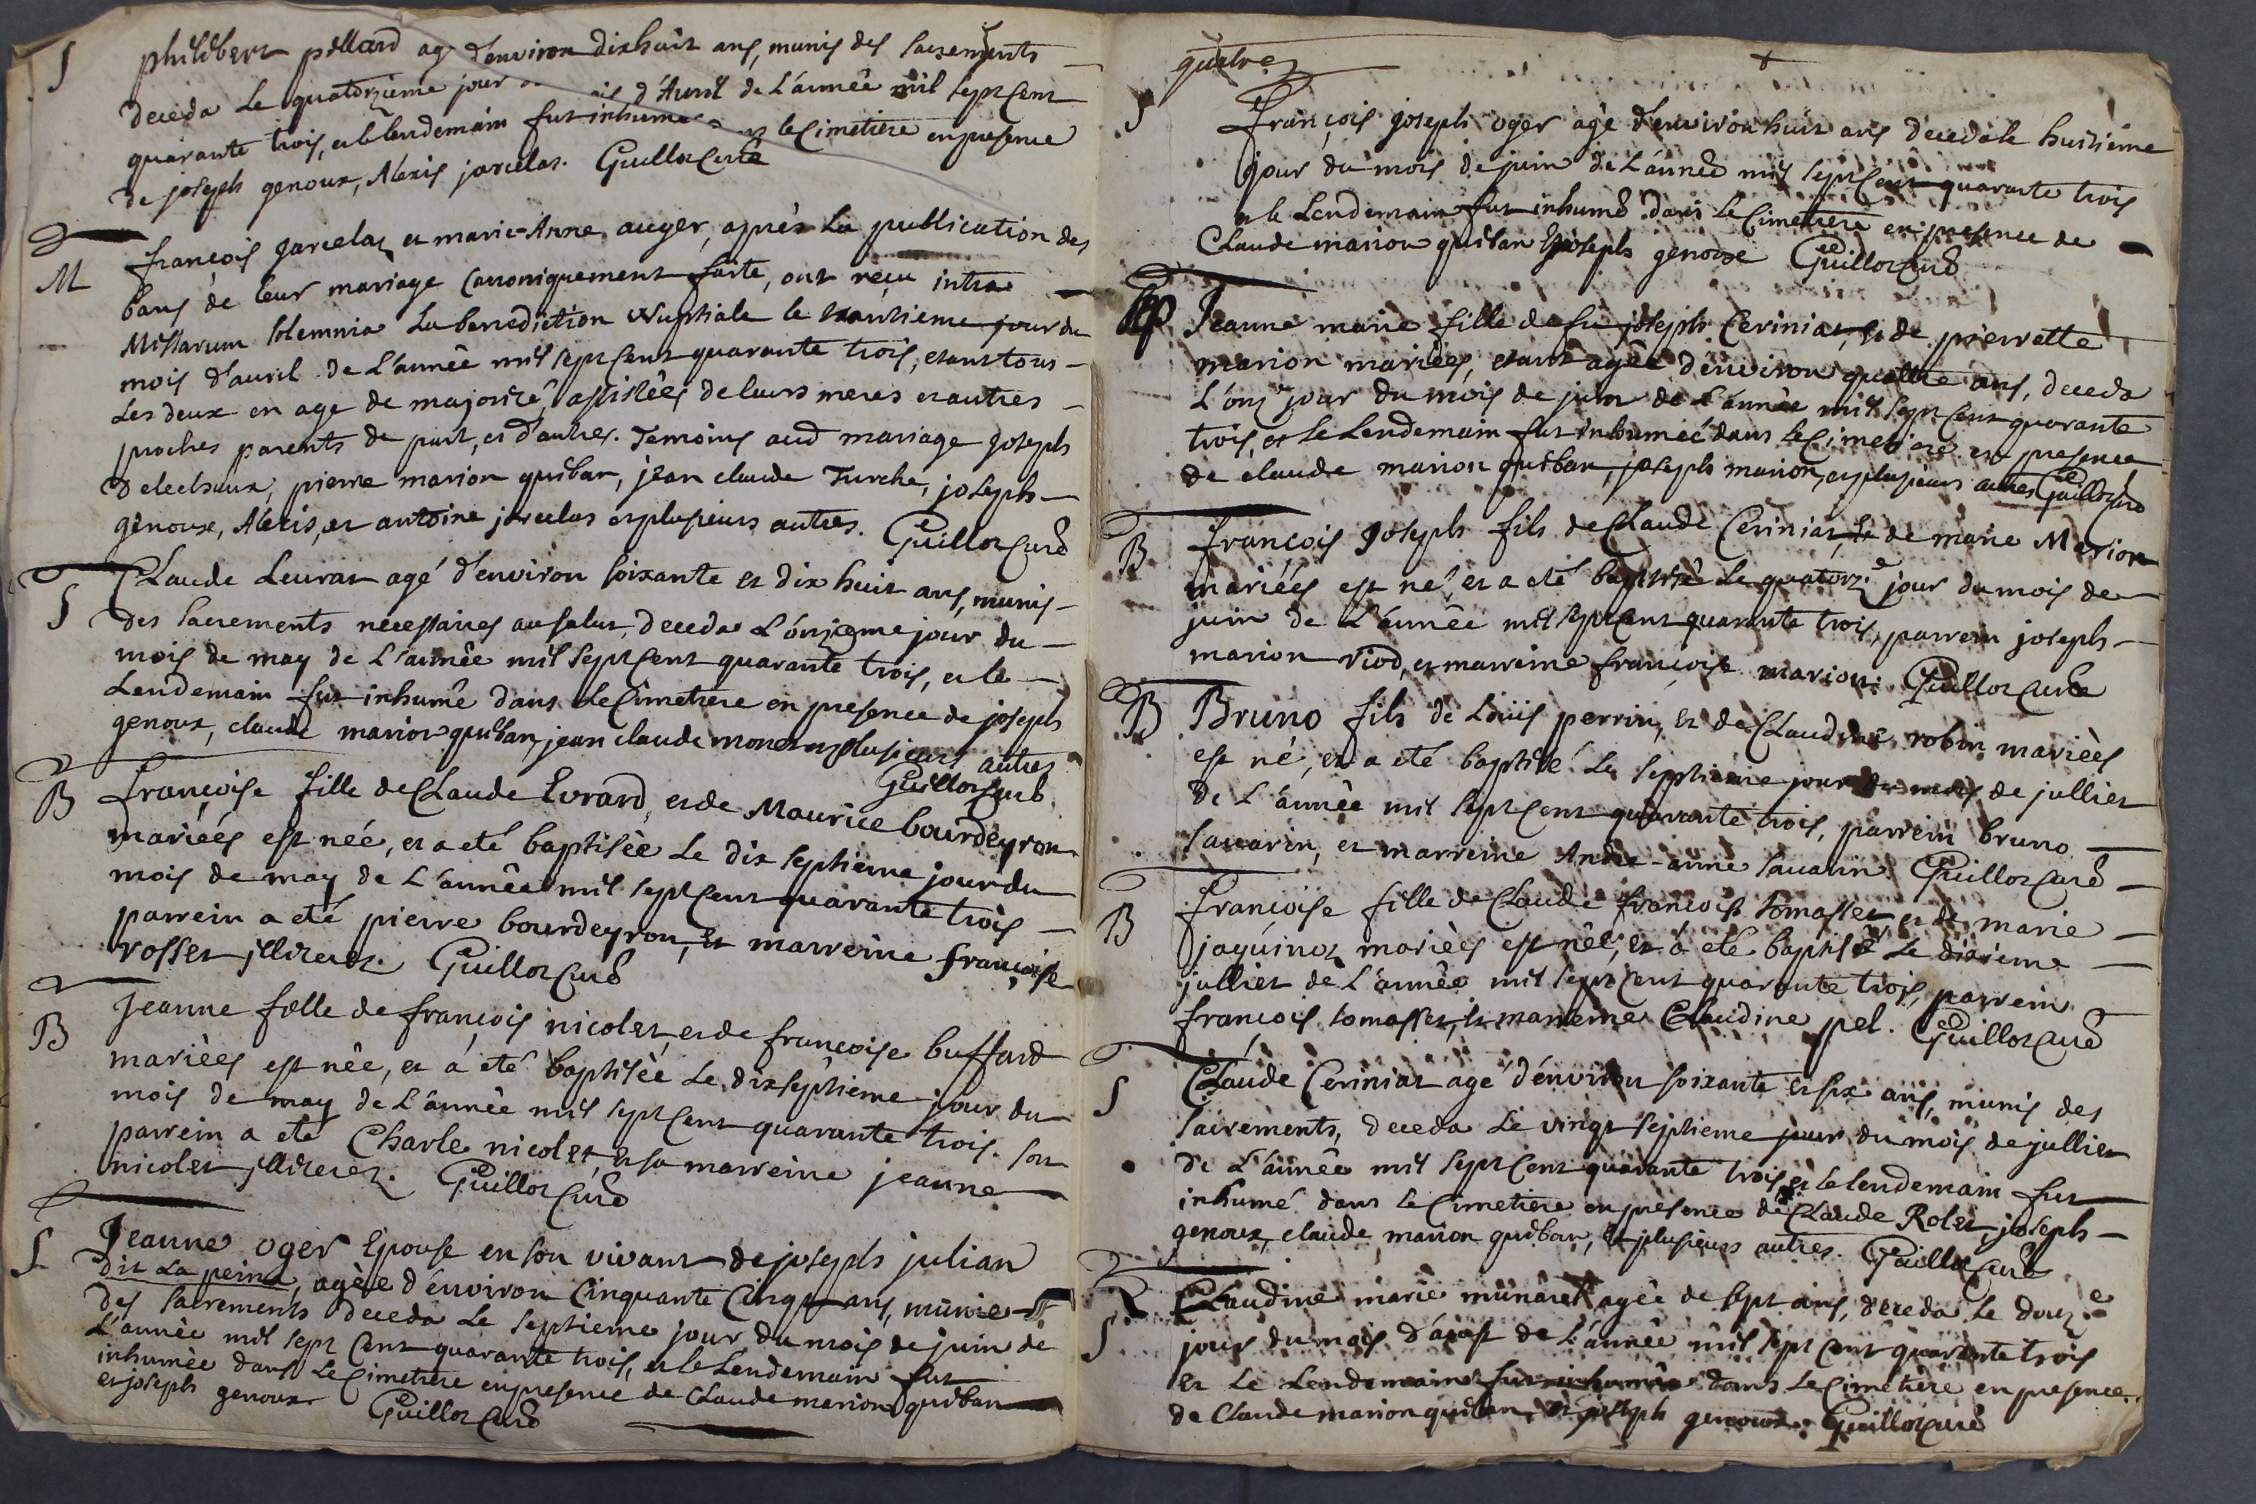 S philibert pillard ag d'environ dixhuit ans, munis des sacrements
deceda le quatorzieme jour d'Avril de l'année mil sept Cent
quarante trois, et le lendemain fut inhumé le Cimetiere en presence
de joseph genoux, Alexis jarcelat. Guillot Curé
M françois jarcelaz et marie-Anne auger, après la publication des
bans de leur mariage Canoniquement faite, ont reçu intra
Missarum solemnia la benediction Nuptiale le trantieme jour du
mois d'avril de L'année mil sept Cent quarante trois, etant tous
les deux en age de majorité, assistées de leurs meres et autres
proches parents de part, et d'autres. Temoins aud mariage joseph
delechaux, pierre marion quiban, jean claude Turche, joseph
genoux, Alexis, et antoine jarcelas et plusieurs autres. Guillot Curé
S Claude Leurat agé d'environ soixante et dix huit ans, munis
des sacrements necessaires au salut, deceda L'onzieme jour du
mois de may de L'année mil sept Cent quarante trois, et le
Lendemain fut inhumé dans le Cimetiere en presence de joseph
genoux, claude marion quiban, jean claude monet et plusieurs autres
Guillot Curé
B françoise fille de Claude Evrard, et de Maurice bourdeyron
mariéés est néé, et a eté baptiséè Le dix septieme jour du
mois de may de L'année mil sept Cent quarante trois
parrein a eté pierre bourdeyron, et marreine françoise
rosset illiterez. Guillot Curé
B Jeanne fille de françois nicolet, et de françoise buffard
mariéès est née, et á eté baptiséè Le dixseptieme jour du
mois de may de L'année mil sept Cent quarante trois. son
parrein a eté Charle nicolet, et sa marreine jeanne
nicolet illiterez. Guillot Curé
S Jeanne oger Epouse en son vivant de joseph julian
dit La peina, agéè d'environ Cinquante Cinqt ans, munie
des sacrements deceda Le septieme jour du mois de juin de
L'année mil sept Cent quarante trois, et le Lendemain fut
inhumée dans le Cimetiere en presence de Claude marion quiban
et joseph genoux. Guillot Curé
quatre
S François joseph oger agé d'environ huit ans deceda le huitième
jour du mois de juin de L'année mil sept Cent quarante trois
et le Lendemain fut inhumé dans le Cimetiere en presence de
Claude marion quiban et joseph genoux Guillot Curé
Jeanne marie fille de fu joseph Ceriniat, et de pierrette
marion mariéés, etant agée d'environ quattre ans, deceda
L'onze jour du mois de juin de L'année mil sept Cent quarante
trois, et le Lendemain fut inhumée dans le Cimetiere en presence
de claude marion quiban, joseph marion, et plusieurs autres Guillot Curé
B françois Joseph fils de Claude Ceriniat, et de marie Marion
mariées est né, et a eté baptisé le quatorze jour du mois de
juin de L'année mil sept Cent quarante trois, parrein joseph
marion viod, et marreine françoise marion. Guillot Curé
B Bruno fils de Loüis perrin, et de Claudine robin mariéès
est né, et a eté baptisé Le septieme jour du mois de julliet
de L'année mil sept Cent quarante trois, parrein bruno
savarin, et marreine Andre-anne savarin Guillot Curé
B françoise fille de Claude françois tomasset et de marie
jaquinot mariéès est néé, et a eté baptisé Le dixieme
julliet de L'année mil sept Cent quarante trois, parrein
françois tomasset, et marreine Claudine pel. Guillot Curé
S Claude Ceriniat agé d'environ soixante et six ans, munis des
sacrements, deceda Le vingt septieme jour du mois de julliet
de L'année mil sept Cent quarante trois, et le lendemain fut
inhumé dans le Cimetiere en presence de Claude Rolet, joseph
genoux, claude marion quiban, et plusieurs autres. Guillot Curé
S Claudine marie munaret agée de sept ans, deceda Le douze
jour du mois d'aoust de L'année mil sept Cent quarante trois
et Le Lendemain fut inhumée dans Le Cimetiere en presence
de Claude marion quiban, et joseph genoux. Guillot Curé